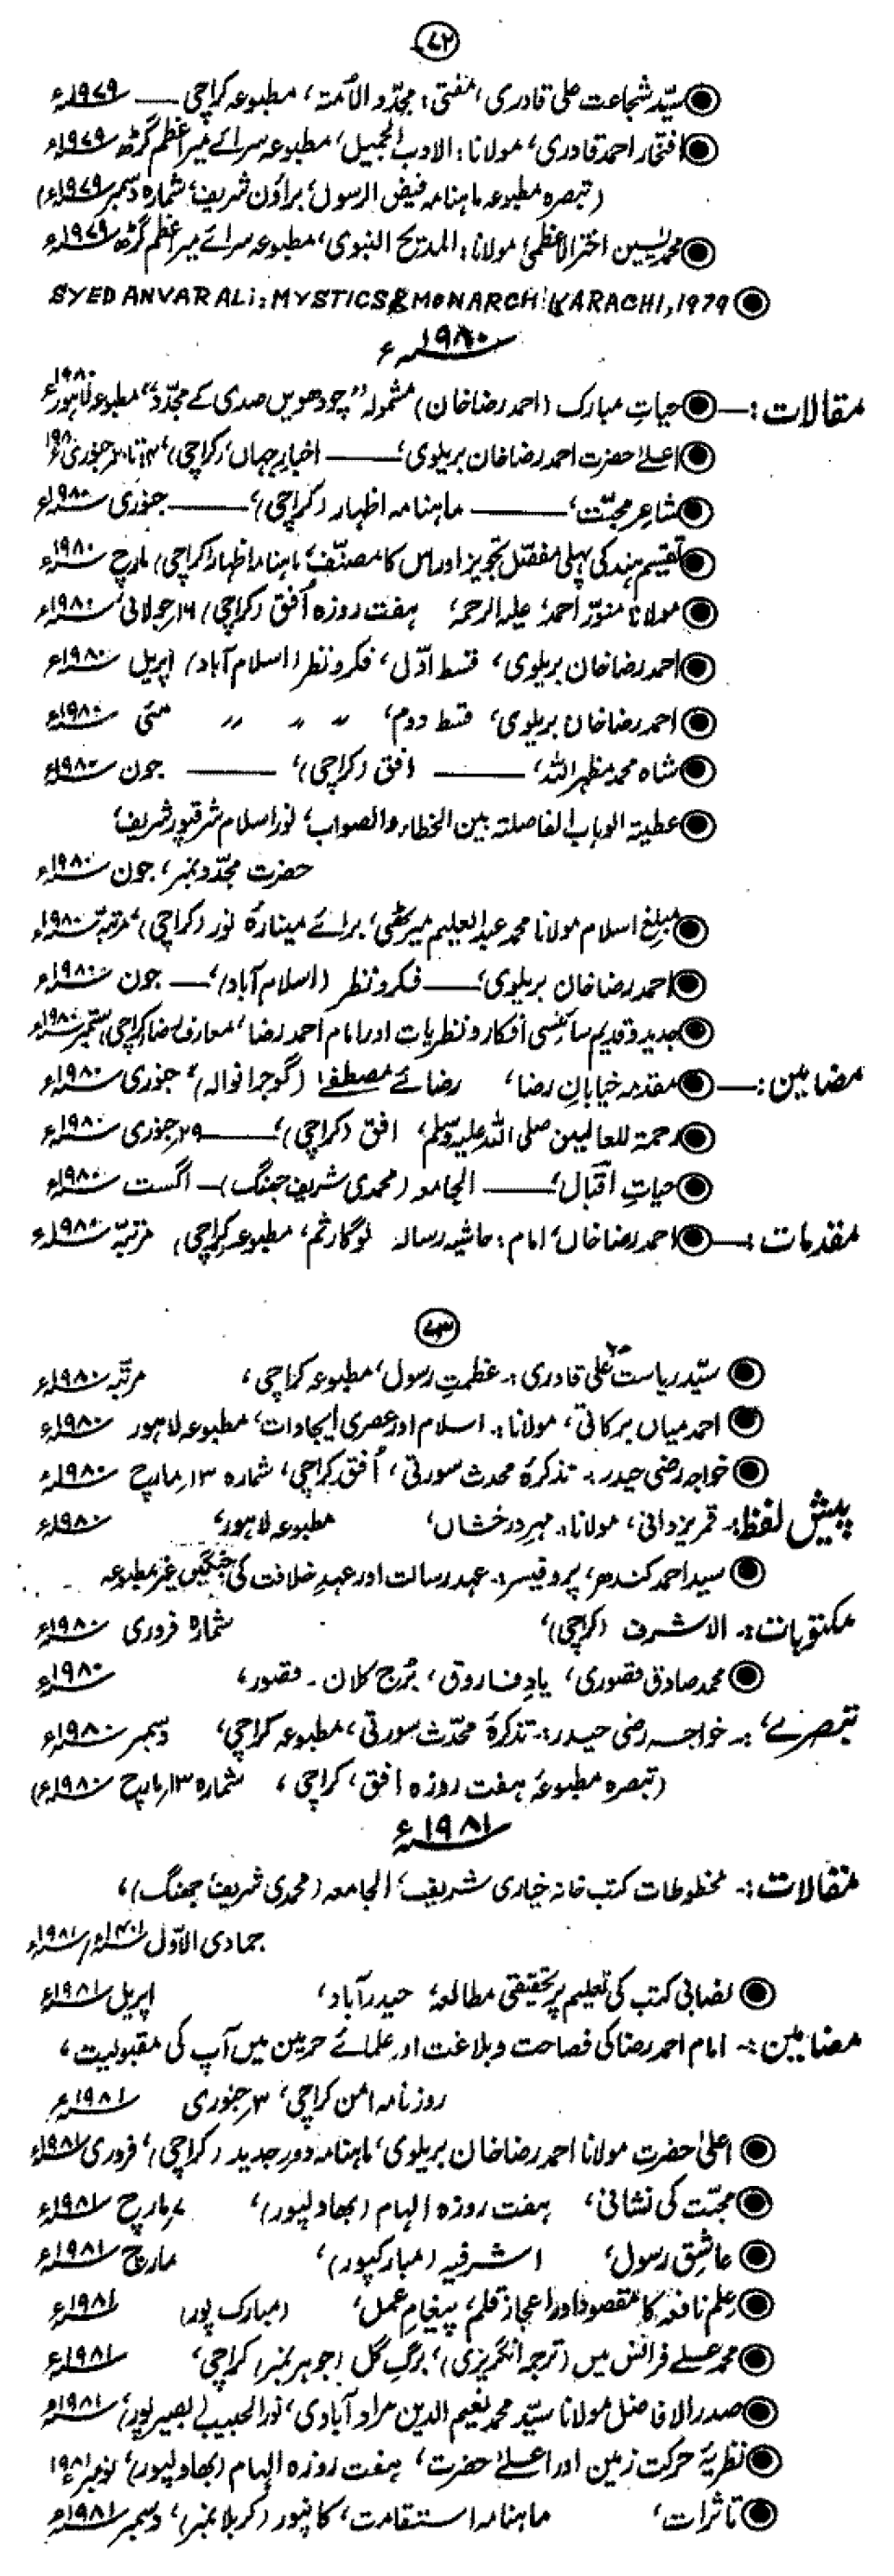 ۷۲
سیّد شجاعت علی قادری، مفتی: مجدّد الاُمتہ، مطبوعہ کراچی — ۱۹۷۹ء
افتخار احمد قادری، مولانا: الادب الجمیل، مطبوعہ سرائے میر اعظم گڑھ ۱۹۷۹ء
(تبصرہ مطبوعہ ماہنامہ فیض الرسول، براؤن شریف، شمارہ دسمبر ۱۹۷۹ء)
محمد یٰسین اختر الاعظمی، مولانا: المدیح النبوی، مطبوعہ سرائے میر اعظم گڑھ ۱۹۷۹ء
SYED ANVAR ALI: MYSTICS & MONARCH: KARACHI, 1979
۱۹۸۰ء
مقالات:— حیاتِ مبارک (احمد رضا خان) مشمولہ "چودھویں صدی کے مجدّد" مطبوعہ لاہور ۱۹۸۰ء
اعلےٰ حضرت احمد رضا خان بریلوی، — اخبارِ جہاں (کراچی)، جنوری ۱۹۸۰ء
شاعرِ محبّت، — ماہنامہ اظہار (کراچی)، — جنوری ۱۹۸۰ء
تقسیم ہند کی پہلی مفصّل تجویز اور اس کا مصنّف، ماہنامہ اظہار (کراچی) مارچ ۱۹۸۰ء
مولانا منوّر احمد علیہ الرحمۃ، ہفت روزہ اُفق (کراچی) ۱۶؍جولائی ۱۹۸۰ء
احمد رضا خان بریلوی، قسط اوّل، فکر و نظر (اسلام آباد) اپریل ۱۹۸۰ء
احمد رضا خان بریلوی، قسط دوم، 〃 〃 〃 مئی ۱۹۸۰ء
شاہ محمد مظہر اللہ، — افق (کراچی)، — جون ۱۹۸۰ء
عطیتہ الوہاب الفاصلتہ بین الخطاء والصواب، نور اسلام شرقپور شریف،
حضرت مجدّد نمبر، جون ۱۹۸۰ء
مبلغِ اسلام مولانا محمد عبدالعلیم میرٹھی، برائے مینارۂ نور (کراچی)، مرتبہ ۱۹۸۰ء
احمد رضا خان بریلوی، — فکر و نظر (اسلام آباد)، — جون ۱۹۸۰ء
جدید و قدیم سائنسی افکار و نظریات اور امام احمد رضا، معارف رضا (کراچی) ستمبر ۱۹۸۰ء
مضامین:— مقدمہ خیابانِ رضا، رضائے مصطفےٰ (گوجرانوالہ)، جنوری ۱۹۸۰ء
رحمۃ للعالمین صلی اللہ علیہ وسلم، افق (کراچی)، — ۲۹؍جنوری ۱۹۸۰ء
حیاتِ اقبال، — الجامعہ (محمدی شریف جھنگ) — اگست ۱۹۸۰ء
مقدمات:— احمد رضا خاں، امام: حاشیہ رسالہ لوگارثم، مطبوعہ کراچی، مرتبہ ۱۹۸۰ء
۷۳
سیّد ریاست علی قادری:۔ عظمتِ رسول، مطبوعہ کراچی، مرتبہ ۱۹۸۰ء
احمد میاں برکاتی، مولانا:۔ اسلام اور عصری ایجادات، مطبوعہ لاہور ۱۹۸۰ء
خواجہ رضی حیدر:۔ تذکرۂ محدث سورتی، اُفق کراچی، شمارہ ۱۳؍مارچ ۱۹۸۰ء
پیش لفظ:۔ قمر یزدانی، مولانا:۔ مہرِ درخشاں، مطبوعہ لاہور، ۱۹۸۰ء
سید احمد کندھر، پروفیسر:۔ عہد رسالت اور عہدِ خلافت کی جنگیں غیر مطبوعہ
مکتوبات:۔ الاشرف (کراچی)، شمارہ فروری ۱۹۸۰ء
محمد صادق قصوری، یادِ فاروق، بُرج کلاں۔ قصور، ۱۹۸۰ء
تبصرے،:۔ خواجہ رضی حیدر:۔ تذکرۂ محدّث سورتی، مطبوعہ کراچی، دسمبر ۱۹۸۰ء
(تبصرہ مطبوعۂ ہفت روزہ افق، کراچی، شمارہ ۱۳؍مارچ ۱۹۸۰ء)
۱۹۸۱ء
مقالات:۔ مخطوطات کتب خانہ خیاری شریف، الجامعہ (محمدی شریف، جھنگ)،
جمادی الاوّل ۱۴۰۱ھ/۱۹۸۱ء
نصابی کتب کی تعلیم پر تحقیقی مطالعہ، حیدرآباد، اپریل ۱۹۸۱ء
مضامین:۔ امام احمد رضا کی فصاحت و بلاغت اور علمائے حرمین میں آپ کی مقبولیت،
روزنامہ امن کراچی، ۳؍جنوری ۱۹۸۱ء
اعلیٰ حضرت مولانا احمد رضا خان بریلوی، ماہنامہ دورِ جدید (کراچی)، فروری ۱۹۸۱ء
محبّت کی نشانی، ہفت روزہ الہام (بہاولپور)، ۷؍مارچ ۱۹۸۱ء
عاشقِ رسول، اشرفیہ (مبارکپور)، مارچ ۱۹۸۱ء
علم نافعہ کا مقصود اور اعجازِ قلم، پیغامِ عمل، (مبارک پور) ۱۹۸۱ء
محمد علی فرانس میں (ترجمہ انگریزی)، برگِ گل (جوہر نمبر) کراچی، ۱۹۸۱ء
صدر الافاضل مولانا سیّد محمد نعیم الدین مراد آبادی، نور الحبیب (بصیر پور)، ۱۹۸۱ء
نظریۂ حرکت زمین اور اعلےٰ حضرت، ہفت روزہ الہام (بھاولپور)، نومبر ۱۹۸۱ء
تاثرات، ماہنامہ استقامت، کانپور (کربلا نمبر)، دسمبر ۱۹۸۱ء